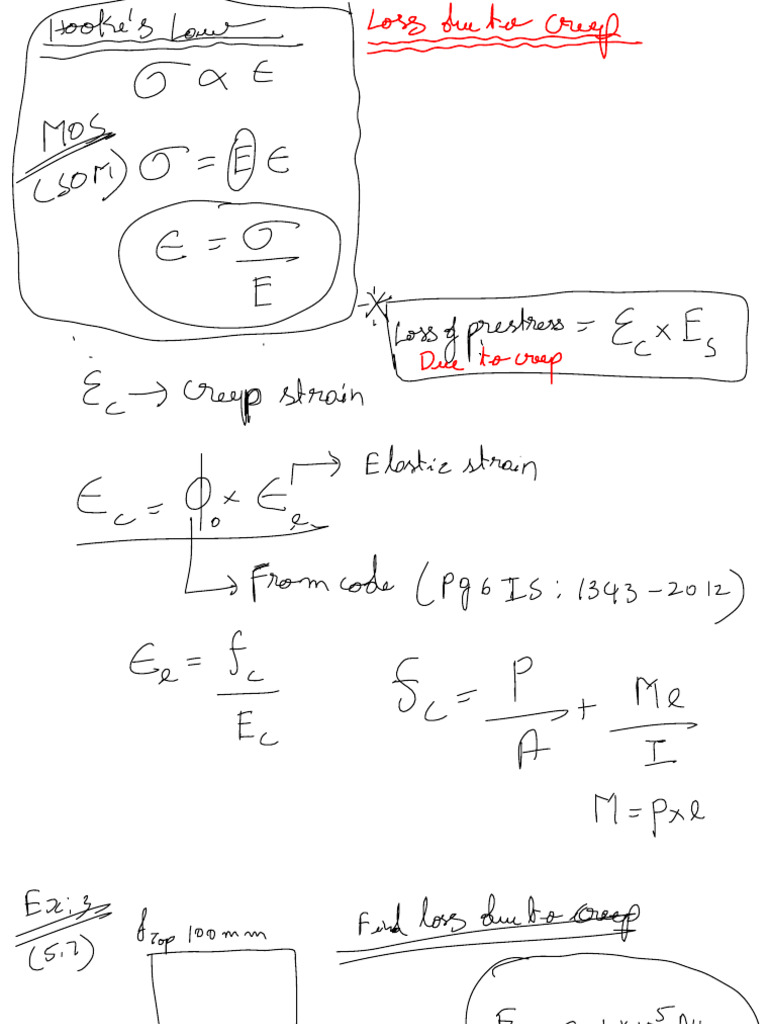 Hooke's Law
σ ∝ ε
MOS
(SOM) σ = E ε
ε = σ / E
Loss due to creep
Loss of prestress = Ɛc × Es
Due to creep
Ɛc → creep strain
εc = ϕ₀ × εe → Elastic strain
→ From code (Pg 6 IS : 1343-2012)
εe = fc / Ec
fc = P / A + Me / I
M = P×e
Ex: 3
(5.2)
fTop 100mm
Find loss due to creep